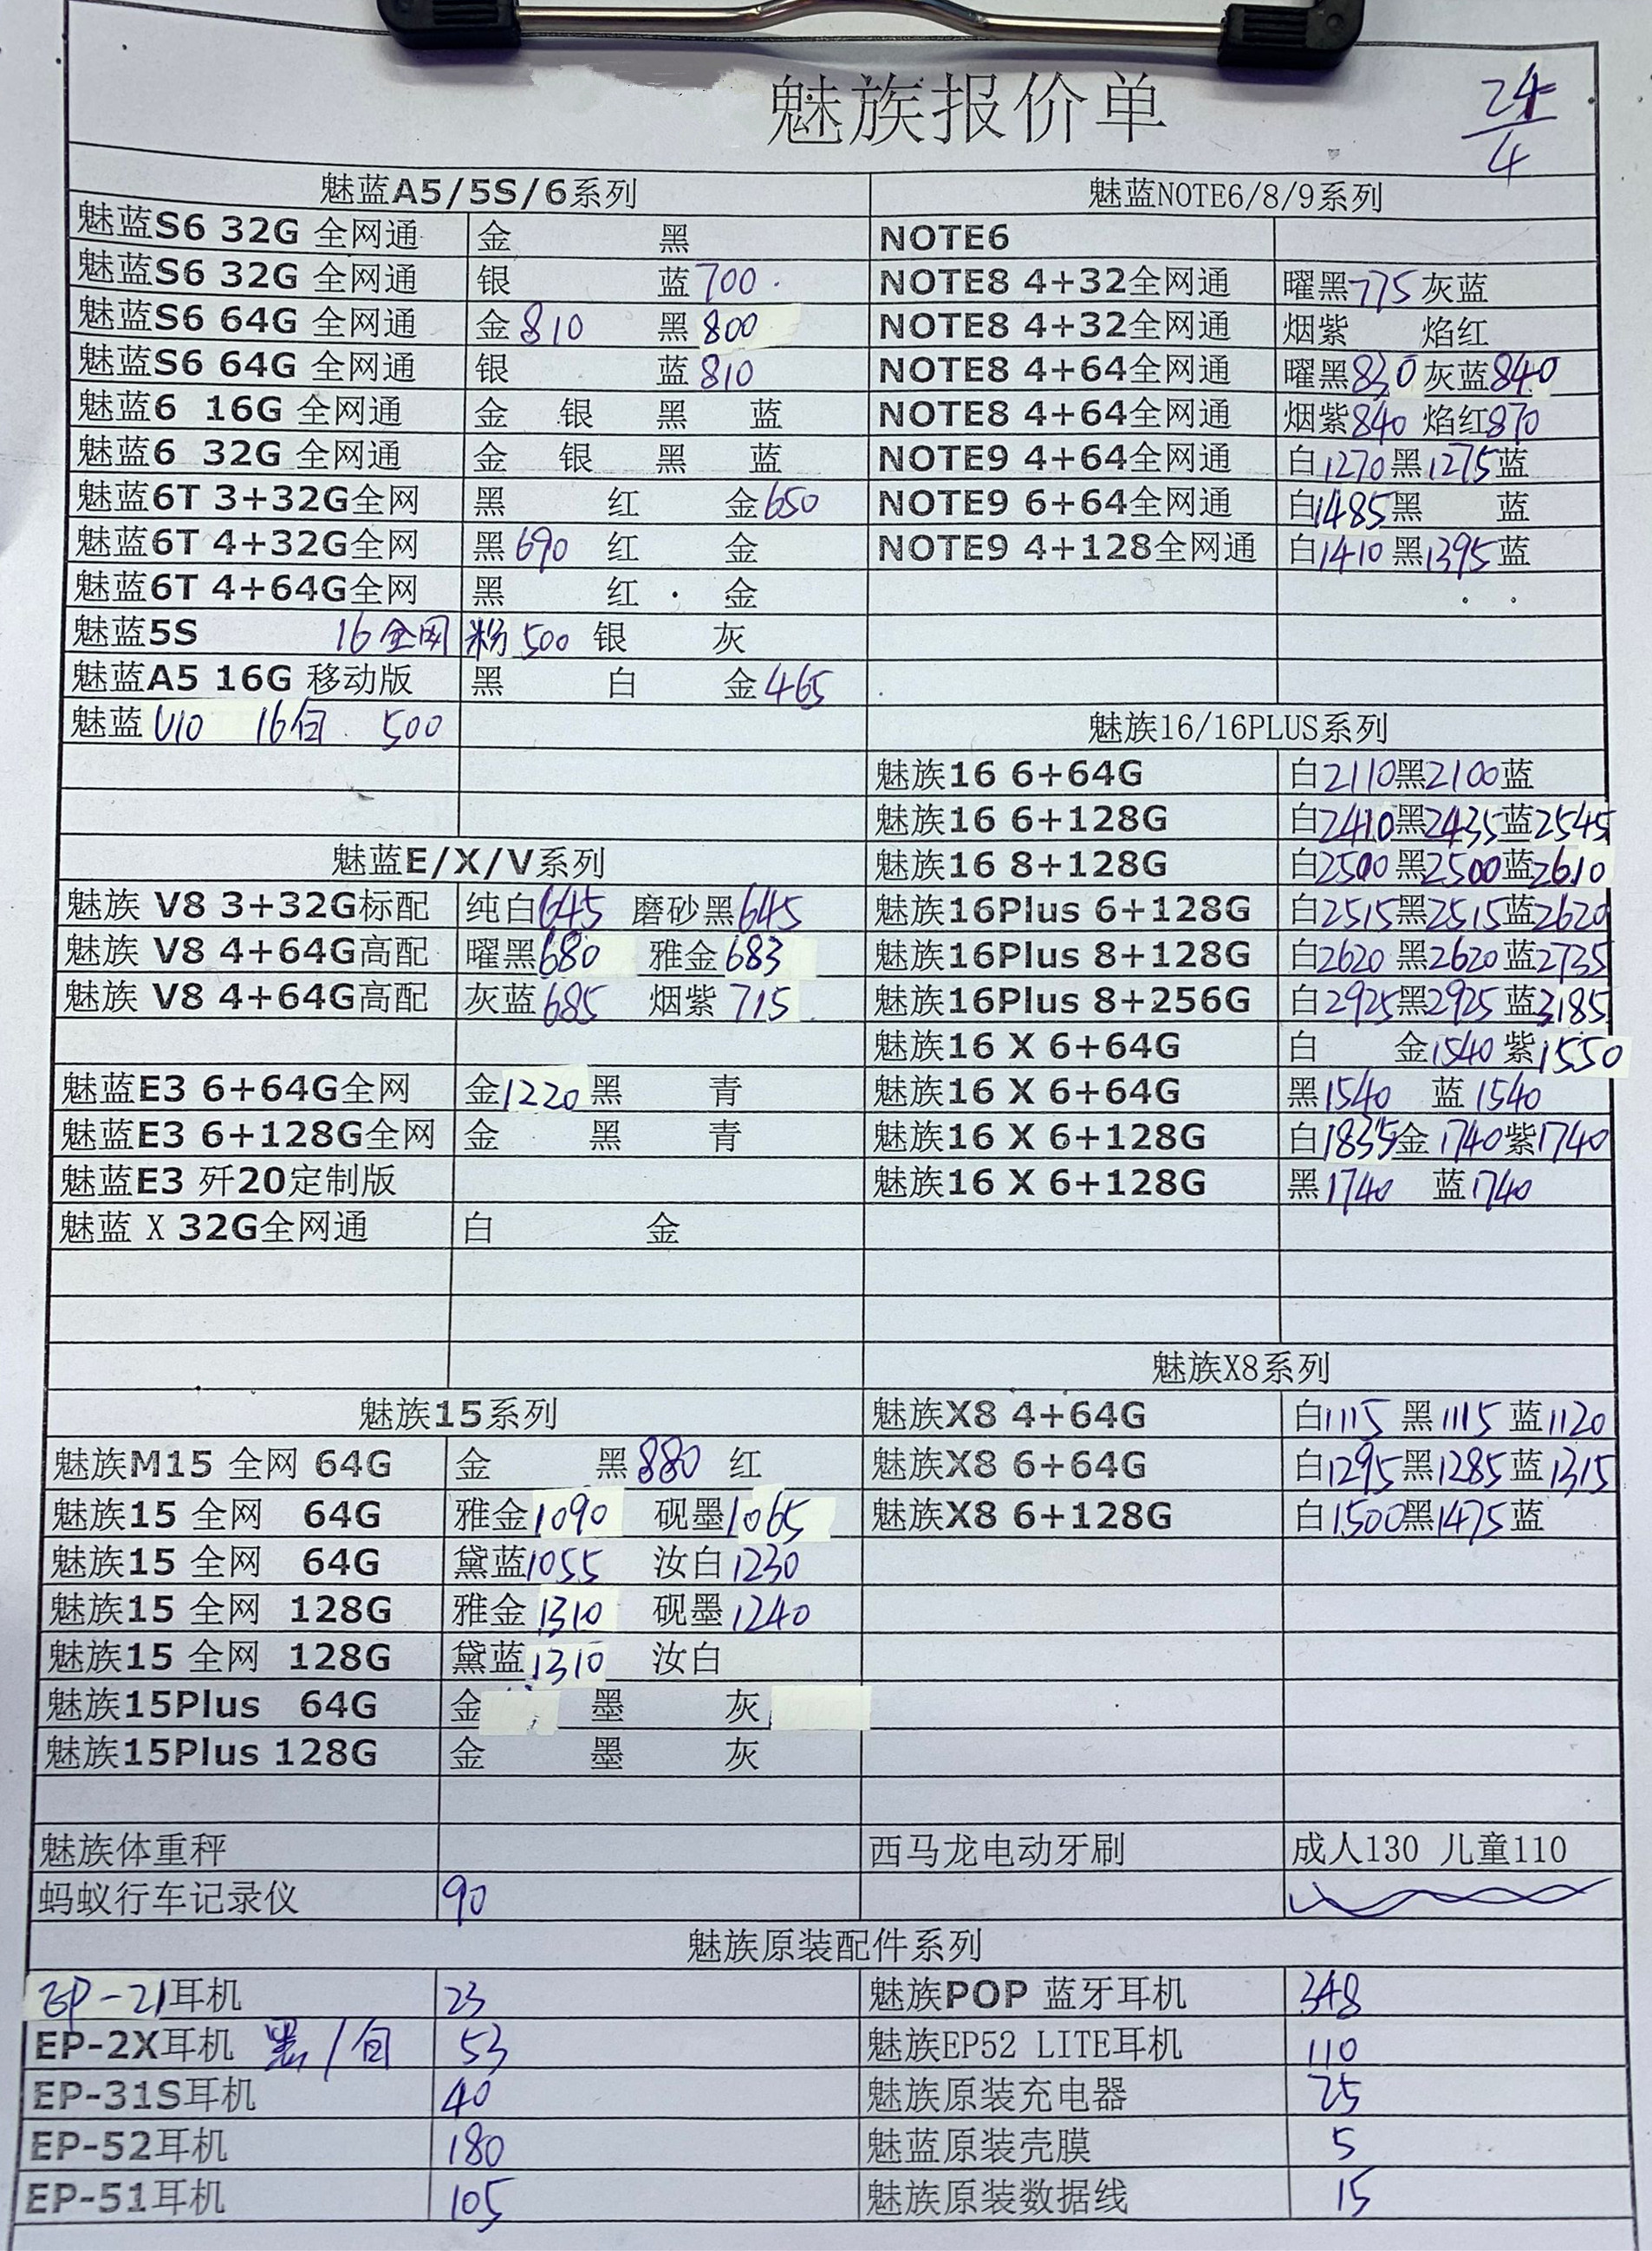 魅族报价单
24/4
魅蓝A5/5S/6系列
魅蓝S6 32G 全网通 金 黑
魅蓝S6 32G 全网通 银 蓝700
魅蓝S6 64G 全网通 金810 黑800
魅蓝S6 64G 全网通 银 蓝810
魅蓝6 16G 全网通 金 银 黑 蓝
魅蓝6 32G 全网通 金 银 黑 蓝
魅蓝6T 3+32G全网 黑 红 金650
魅蓝6T 4+32G全网 黑690 红 金
魅蓝6T 4+64G全网 黑 红 金
魅蓝5S 16全网 粉500 银 灰
魅蓝A5 16G 移动版 黑 白 金465
魅蓝U10 16白 500
魅蓝E/X/V系列
魅族 V8 3+32G标配 纯白645 磨砂黑645
魅族 V8 4+64G高配 曜黑680 雅金683
魅族 V8 4+64G高配 灰蓝685 烟紫715
魅蓝E3 6+64G全网 金1220 黑 青
魅蓝E3 6+128G全网 金 黑 青
魅蓝E3 歼20定制版
魅蓝 X 32G全网通 白 金
魅族15系列
魅族M15 全网 64G 金 黑880 红
魅族15 全网 64G 雅金1090 砚墨1065
魅族15 全网 64G 黛蓝1055 汝白1230
魅族15 全网 128G 雅金1310 砚墨1240
魅族15 全网 128G 黛蓝1310 汝白
魅族15Plus 64G 金 墨 灰
魅族15Plus 128G 金 墨 灰
魅蓝NOTE6/8/9系列
NOTE6
NOTE8 4+32全网通 曜黑775 灰蓝
NOTE8 4+32全网通 烟紫 焰红
NOTE8 4+64全网通 曜黑830 灰蓝840
NOTE8 4+64全网通 烟紫840 焰红870
NOTE9 4+64全网通 白1270黑1275蓝
NOTE9 6+64全网通 白1485黑 蓝
NOTE9 4+128全网通 白1410 黑1395蓝
魅族16/16PLUS系列
魅族16 6+64G 白2110黑2100蓝
魅族16 6+128G 白2410黑2435蓝2545
魅族16 8+128G 白2500黑2500蓝2610
魅族16Plus 6+128G 白2515黑2515蓝2620
魅族16Plus 8+128G 白2620黑2620蓝2735
魅族16Plus 8+256G 白2925黑2925 蓝3185
魅族16 X 6+64G 白 金1540 紫1550
魅族16 X 6+64G 黑1540 蓝1540
魅族16 X 6+128G 白1835金1740紫1740
魅族16 X 6+128G 黑1740 蓝1740
魅族X8系列
魅族X8 4+64G 白1115 黑1115 蓝1120
魅族X8 6+64G 白1295黑1285蓝1315
魅族X8 6+128G 白1500黑1475蓝
魅族体重秤 西马龙电动牙刷 成人130 儿童110
蚂蚁行车记录仪 90
魅族原装配件系列
EP-21耳机 23 魅族POP 蓝牙耳机 348
EP-2X耳机 黑/白 53 魅族EP52 LITE耳机 110
EP-31S耳机 40 魅族原装充电器 25
EP-52耳机 180 魅蓝原装壳膜 5
EP-51耳机 105 魅族原装数据线 15